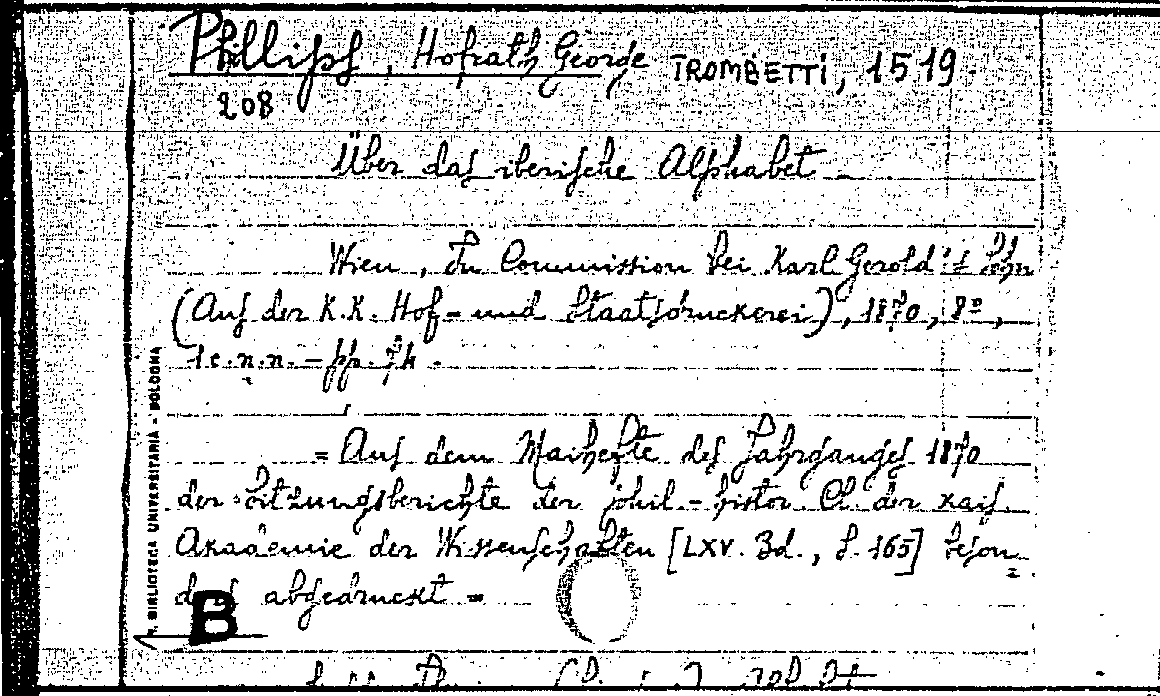 Phillips, Hofrath George TROMBETTI, 1519
208
Über das iberische Alphabet -
Wien, In Commission bei Karl Gerold's Sohn
(Aus der K.K. Hof- und Staatsdruckerei), 1870, 8º,
1 c.n.n. - pp. 74 -
= Aus dem Maihefte des Jahrganges 1870
der Sitzungsberichte der phil-histor. Cl. der kais.
Akademie der Wissenschaften [LXV. Bd., S. 165] beson=
ders abgedruckt =
R. BIBLIOTECA UNIVERSITARIA - BOLOGNA
B